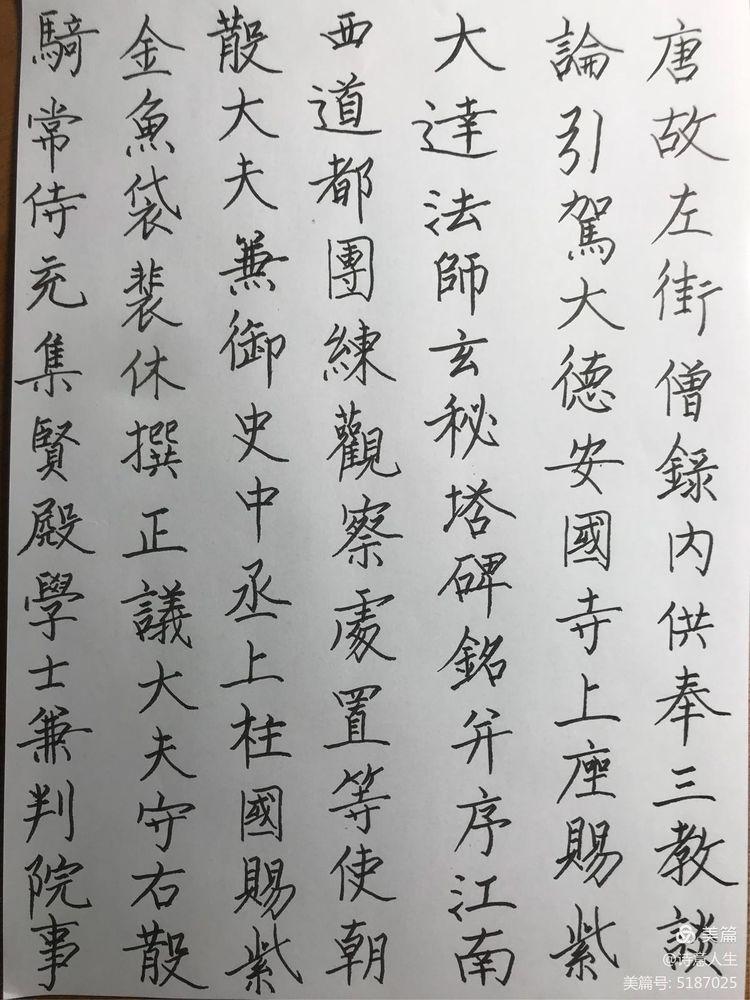 唐故左街僧録内供奉三教談
論引駕大德安國寺上座賜紫
大達法師玄秘塔碑銘并序江南
西道都團練觀察處置等使朝
散大夫兼御史中丞上柱國賜紫
金魚袋裴休撰正議大夫守右散
騎常侍充集賢殿學士兼判院事
美篇
@诗意人生
美篇号: 5187025